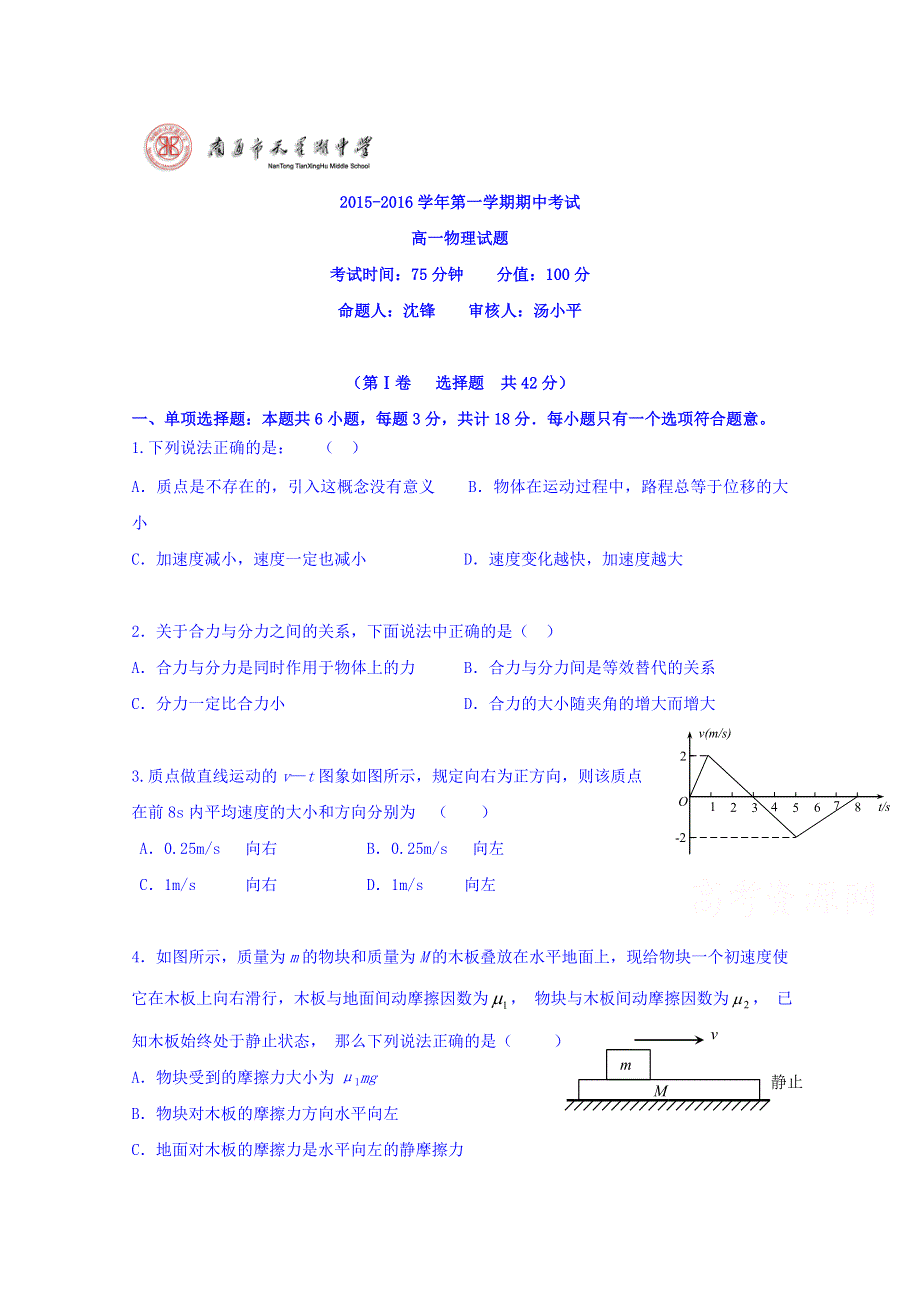 南通市天星湖中学
NanTong TianXingHu Middle School
2015-2016 学年第一学期期中考试
高一物理试题
考试时间：75 分钟 分值：100 分
命题人：沈锋 审核人：汤小平
（第Ⅰ卷 选择题 共 42 分）
一、单项选择题：本题共 6 小题，每题 3 分，共计 18 分．每小题只有一个选项符合题意。
1.下列说法正确的是： （ ）
A．质点是不存在的，引入这概念没有意义 B．物体在运动过程中，路程总等于位移的大
小
C．加速度减小，速度一定也减小 D．速度变化越快，加速度越大
2．关于合力与分力之间的关系，下面说法中正确的是（ ）
A．合力与分力是同时作用于物体上的力 B．合力与分力间是等效替代的关系
C．分力一定比合力小 D．合力的大小随夹角的增大而增大
3.质点做直线运动的 v—t 图象如图所示，规定向右为正方向，则该质点
在前 8s 内平均速度的大小和方向分别为 （ ）
A．0.25m/s 向右 B．0.25m/s 向左
C．1m/s 向右 D．1m/s 向左
v(m/s)
2
O 1 2 3 4 5 6 7 8 t/s
-2
高考资源网
4．如图所示，质量为 m 的物块和质量为 M 的木板叠放在水平地面上，现给物块一个初速度使
它在木板上向右滑行，木板与地面间动摩擦因数为 μ₁， 物块与木板间动摩擦因数为 μ₂， 已
知木板始终处于静止状态， 那么下列说法正确的是（ ）
A．物块受到的摩擦力大小为 μ₁mg
B．物块对木板的摩擦力方向水平向左
C．地面对木板的摩擦力是水平向左的静摩擦力
v
m
M 静止